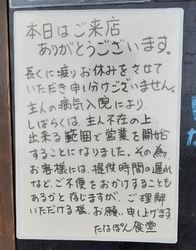 本日はご来店
ありがとうございます。
長くに渡りお休みをさせて
いただき申し分けございません。
主人の病気入院により、
しばらくは、主人不在の上
出来る範囲で営業を開始
することになりました。その為、
お客様には、提供時間の遅れ
など、ご不便をおかけすることも
あるかと存じますが、ご理解
いただける様、お願い申し上げます。
たなぼた食堂